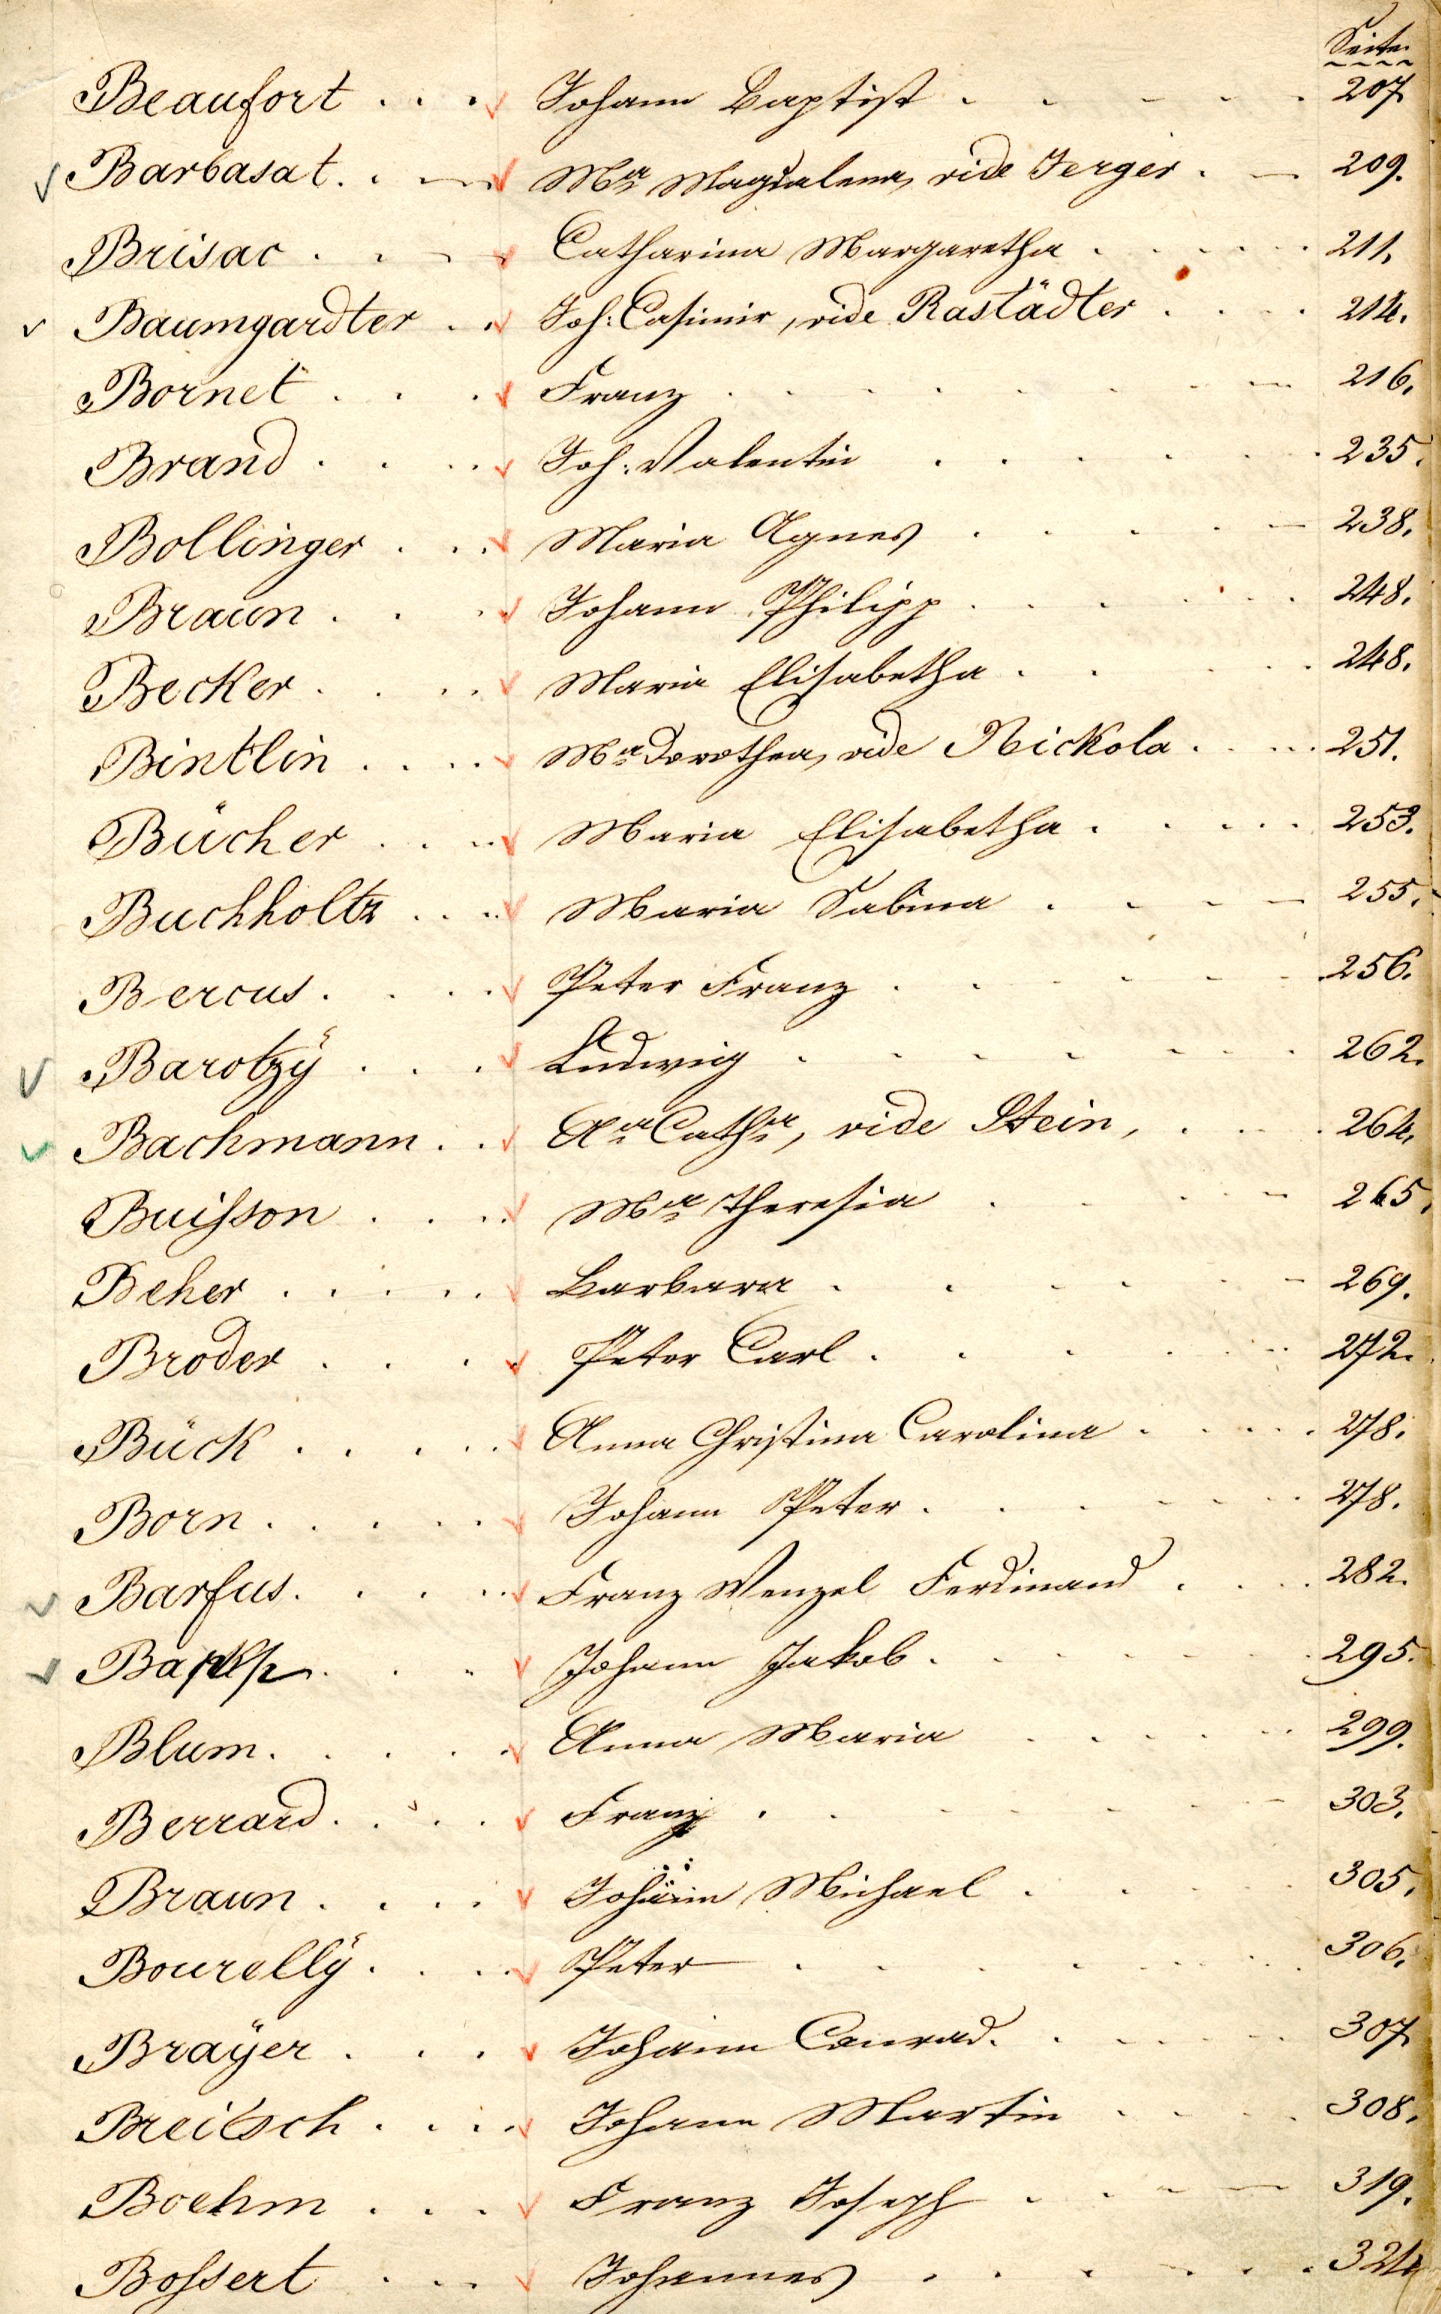 Seite.
Beaufort . . . Johann Baptist . . . . . 207
Barbasat. . . Mra Magdalena, vide Jerger . . 209.
Brisac . . . Catharina Margaretha . . . . . 211.
Baumgardter . . Joh: Casimir, vide Rastädter . . . 214.
Bornet . . . Franz . . . . . . . 216.
Brand . . . . Joh: Valentin . . . . . . 235.
Bollinger . . . Maria Agnes . . . . . 238.
Braun . . . Johann Philipp . . . . . 248.
Becker . . . . Maria Elisabetha . . . . . 248.
Bintlin . . . . Mra Dorothea, vide Nickola . . . . 251.
Bücher . . . . Maria Elisabetha . . . . . 253.
Buchholtz . . . . Maria Sabina . . . . . 255.
Bercus . . . . Peter Franz . . . . . . 256.
Barotzÿ . . . Ludwig . . . . . . . 262.
Bachmann . . Ana Catha, vide Stein, . . . . 264.
Buisson . . . . Mra Theresia . . . . . 265.
Beher . . . . . Barbara . . . . . . 269.
Broder . . . . Peter Carl . . . . . . 272.
Bück . . . . . Anna Christina Carolina . . . . . 278.
Born . . . . . Johann Peter . . . . . . 278.
Barfus . . . . . Franz Wenzel Ferdinand . . . . 282.
. . . Johann Jakob . . . . . . 295.
Blum . . . . . Anna Maria . . . . . 299.
Berrard . . . . Franz . . . . . . 303.
Braun . . . . Johann Michael . . . . . 305.
Bourellÿ . . . . Peter . . . . . . 306.
Braÿer . . . Johann Conrad . . . . . . 307
Breitsch . . . . Johann Martin . . . . 308.
Boehm . . . Franz Joseph . . . . . 319.
Bossert . . . Johannes . . . . . . 324